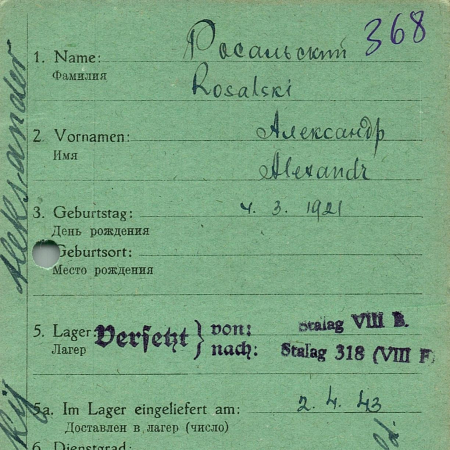 368
1. Name: Росальский
Фамилия
Rosalski
2. Vornamen: Александр
Имя
Alexandr
3. Geburtstag: 4. 3. 1921
День рождения
Geburtsort:
Место рождения
5. Lager Versetzt } von: Stalag VIII B.
Лагер nach: Stalag 318 (VIII F)
5a. Im Lager eingeliefert am: 2. 4. 43
Доставлен в лагер (число)
6. Dienstgrad:
Aleksander